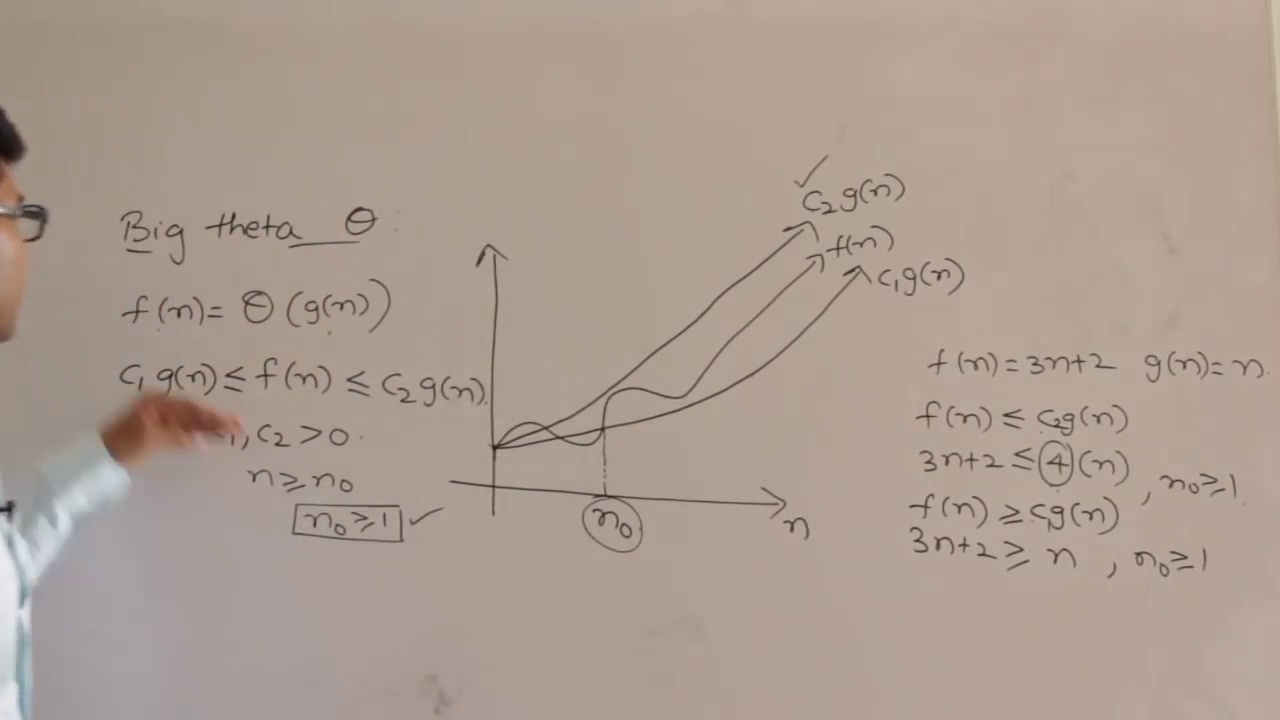 Big theta Θ
f(n) = Θ(g(n))
c₁g(n) ≤ f(n) ≤ c₂g(n)
₁, c₂ > 0
n ≥ n₀
n₀ ≥ 1 ✓
✓
c₂g(n)
f(n)
c₁g(n)
n₀
n
f(n) = 3n+2 g(n) = n
f(n) ≤ c₂g(n)
3n+2 ≤ 4(n), n₀ ≥ 1
f(n) ≥ c₁g(n)
3n+2 ≥ n, n₀ ≥ 1